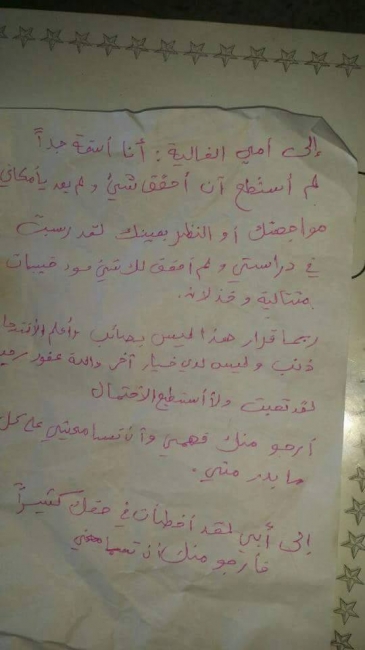 إلى أمي الغالية : أنا أسفة جداً
لم أستطع أن أحقق شيئ ولم يعد بأمكاني
مواجهتك أو النظر بعينك لقد رسبت
في دراستي ولم أحقق لك شيئ سوى خيبات
متتالية وخذلان.
ربما قرار هذا ليس بصائب وأعلم الأنتحار
ذنب وليس لدي خيار آخر والله غفور رحيم
لقد تعبت ولا أستطيع الاحتمال
أرجو منك فهمي وأن تسامحيني على كل
ما بدر مني.
إلى أبي لقد أخطأت في حقك كثيراً
فأرجو منك أن تسامحني